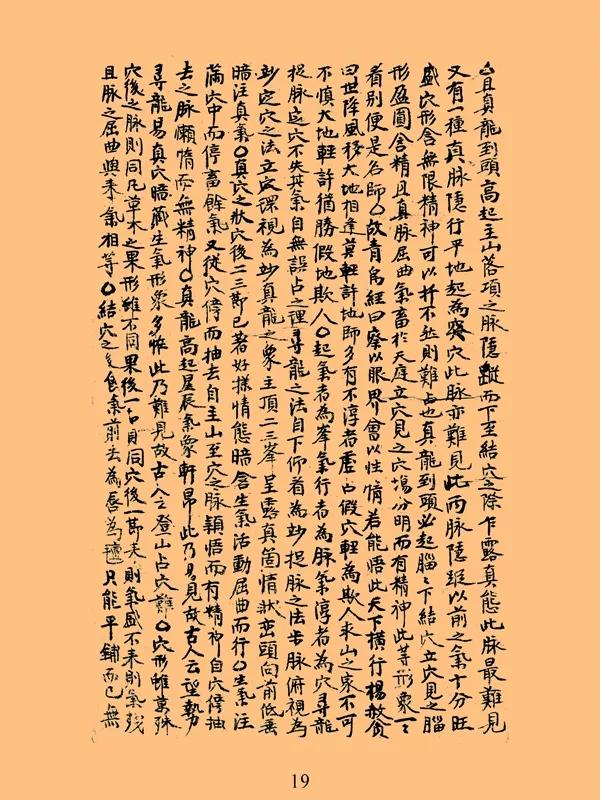 凸且真龍到頭高起主山落項之脉隱蹤而下至結穴之際乍露真態此脉最難見
又有一種真脉隱行平地起為窩穴此脉亦難見此兩脉隱踪以前之氣十分旺
盛穴形含無限精神可以并不然則難占也真龍到頭必起腦〻下結穴立穴見之腦
形盈圓含精且真脉屈曲氣畜於天庭立穴見之穴塲分明而有精神此等形象一〻
看別便是名師〇故青烏經曰察以眼界會以性情若能悟此天下橫行楊救貧
曰世降風移大地相逢莫輕許地師多有不淳者虛占假穴輕為欺人求山之家不可
不慎大地輕許猶勝假地欺人〇起氣者為峯氣行者為脉氣淳者為穴尋龍
捉脉定穴不失其氣自無誤占之理尋龍之法自下仰看為妙捉脉之法步脉俯視為
妙定穴之法立定環視為妙真龍之象主頂二三峯呈露真箇情狀峦頭向前低垂
暗注真氣〇真穴之狀穴後一二三節已著好樣情態暗含生氣活動屈曲而行〇生氣注
滿穴中而停畜餘氣又從穴傍而抽去自主山至穴之脉穎悟而有精神自穴傍抽
去之脉懶惰而無精神〇真龍高起星辰氣象軒昂此乃易見故古人云望勢
尋龍易真穴暗藏生氣形象多恠此乃難見故古人云登山占穴難〇穴形雖萬殊
穴後之脉則同凡草木之果形雖不同果後一占則同穴後一節来則氣盛不来則氣殘
且脉之屈曲與来氣相等〇結穴之後氣前去為唇為氊只能平鋪而已無
19